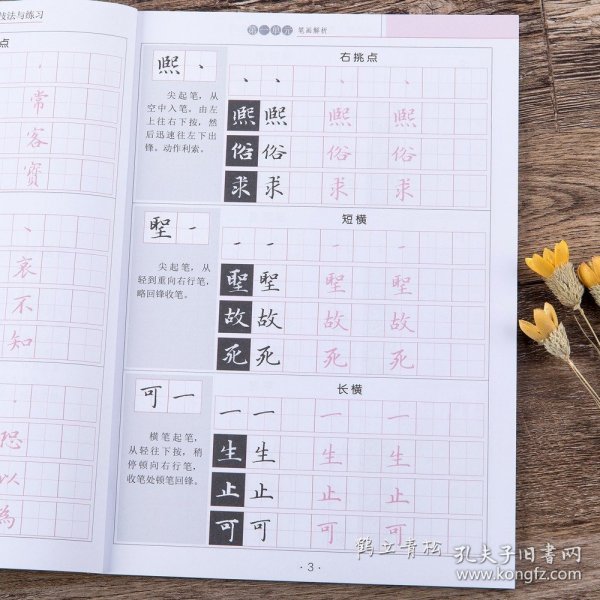 技法与练习
点
常
客
寶
哀
不
知
恐
以
為
第一单元 笔画解析
右挑点
熙 丶
尖起笔，从
空中入笔。由左
上往右下按，然
后迅速往左下出
锋。动作利索。
丶 丶 丶 丶
熙 熙 熙 熙
俗 俗 俗 俗
求 求 求 求
短横
聖 一
尖起笔，从
轻到重向右行笔，
略回锋收笔。
一 一 一 一
聖 聖 聖 聖
故 故 故 故
死 死 死 死
长横
可 一
横笔起笔，
从轻往下按，稍
停顿向右行笔，
收笔处顿笔回锋。
一 一 一 一
生 生 生 生
止 止 止 止
可 可 可 可
·3·
鹤立青松 孔夫子旧书网
www.kongfz.com